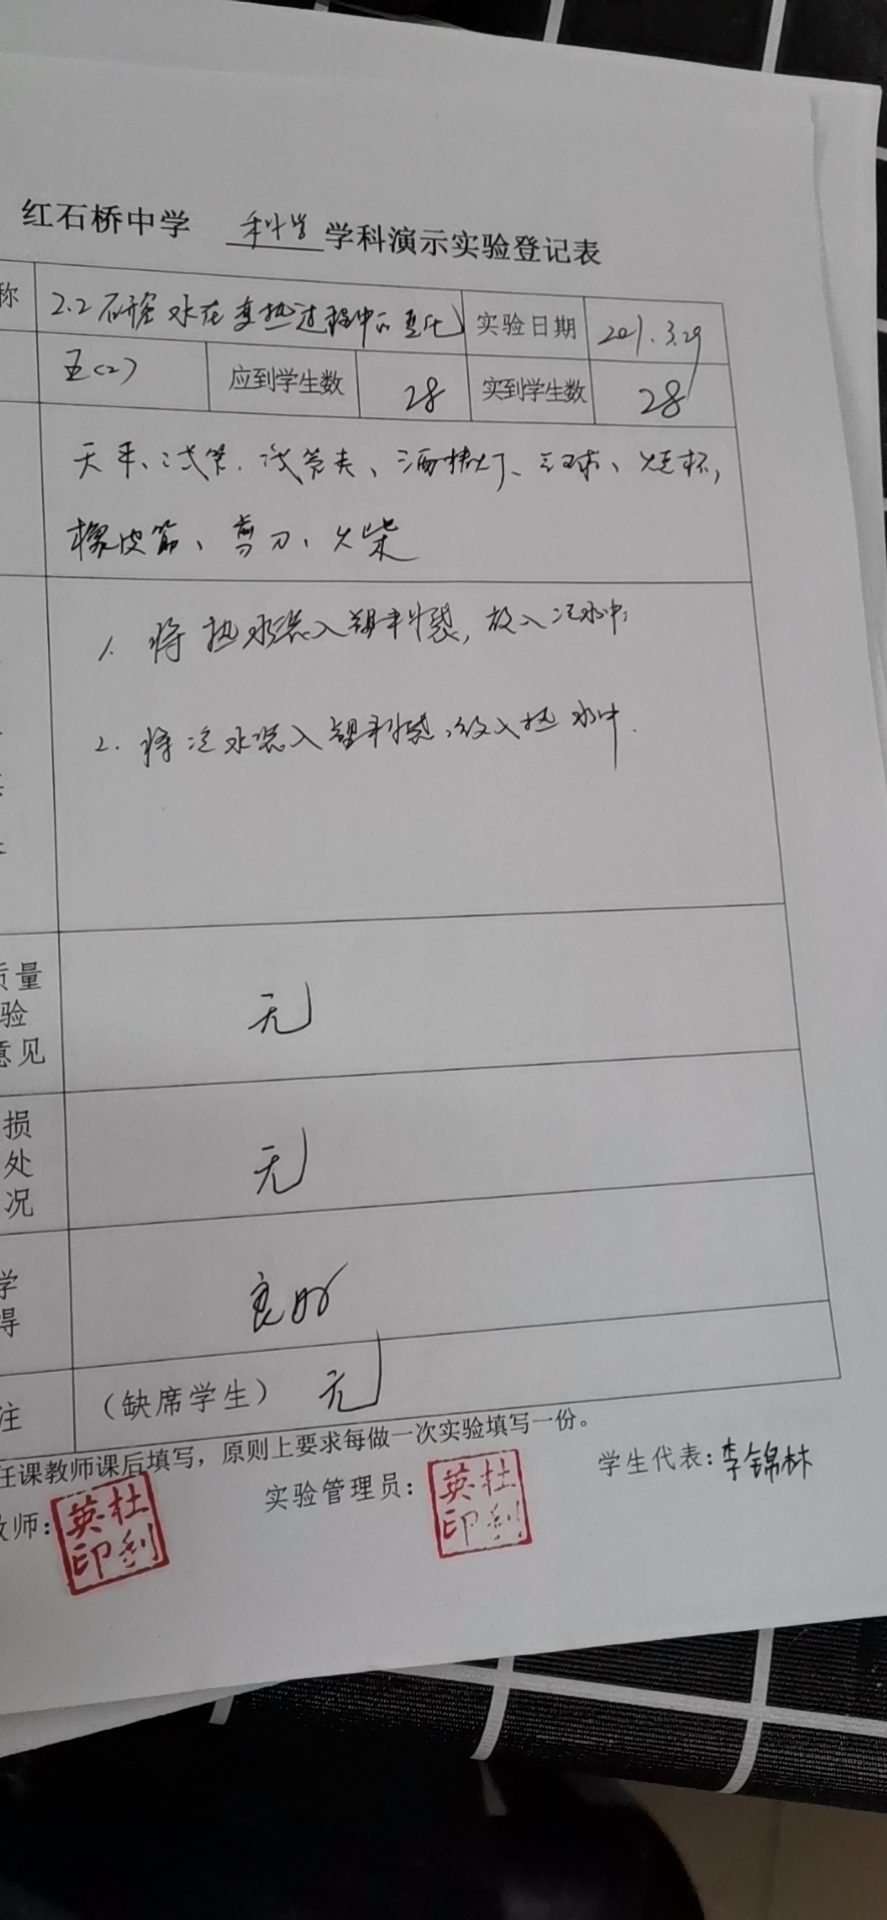 红石桥中学 科学 学科演示实验登记表
称 2.2 研究水在变热过程中的变化 实验日期 2021.3.29
五(2) 应到学生数 28 实到学生数 28
天平、试管、试管夹、酒精灯、气球、烧杯,
橡皮筋、剪刀、火柴
1. 将热水装入塑料袋,放入冷水中;
2. 将冷水装入塑料袋,放入热水中.
质量
验
意见
无
损
处
况
无
学
得
良好
注 (缺席学生) 无
任课教师课后填写,原则上要求每做一次实验填写一份。
教师: 杜利英印 实验管理员: 杜利英印 学生代表: 李锦林